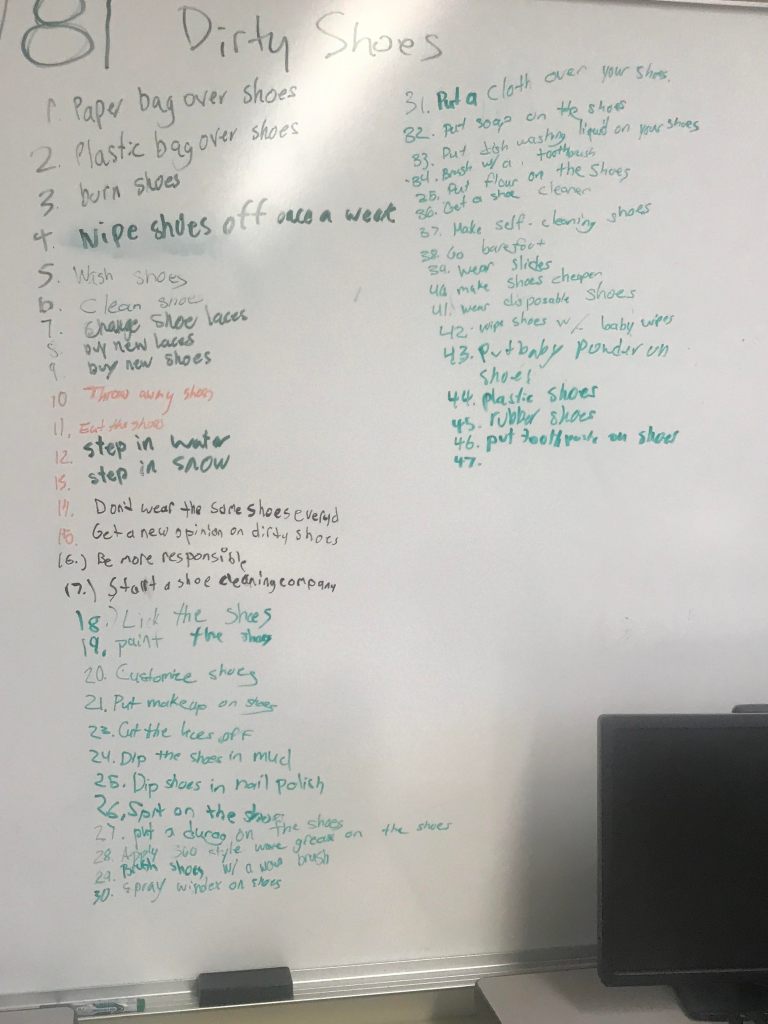 81 Dirty Shoes
1. Paper bag over shoes
2. Plastic bag over shoes
3. burn shoes
4. Wipe shoes off once a week
5. Wish shoes
6. Clean shoe
7. Change Shoe laces
8. buy new laces
9. buy new shoes
10 Throw away shoes
11. Eat the shoes
12. step in water
13. step in snow
14. Don't wear the same shoes everyd
15. Get a new opinion on dirty shoes
16.) Be more responsible
17.) Start a shoe cleaning company
18.) Lick the Shoes
19. paint the shoes
20. Customize shoes
21. Put makeup on shoes
23. Cut the laces off
24. Dip the shoes in mud
25. Dip shoes in nail polish
26. Spit on the shoes
27. put a durag on the shoes
28. Apply 360 style wave grease on the shoes
29. Brush shoes w/ a wave brush
30. Spray windex on shoes
31. Put a cloth over your shoes.
32. Put soap on the shoes
33. Put dish washing liquid on your shoes
34. Brush w/ a toothbrush
35. Put flour on the shoes
36. Get a shoe cleaner
37. Make self-cleaning shoes
38. Go barefoot
39. wear slides
40 make shoes cheaper
41. wear disposable shoes
42. wipe shoes w/ baby wipes
43. Put baby powder on
shoes
44. plastic shoes
45. rubber shoes
46. put toothpaste on shoes
47.